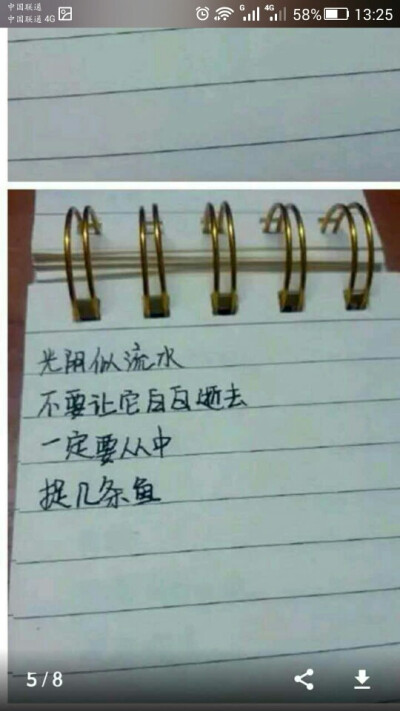 中国联通
中国联通 4G
G 4G 58% 13:25
光阴似流水
不要让它白白逝去
一定要从中
捉几条鱼
5/8